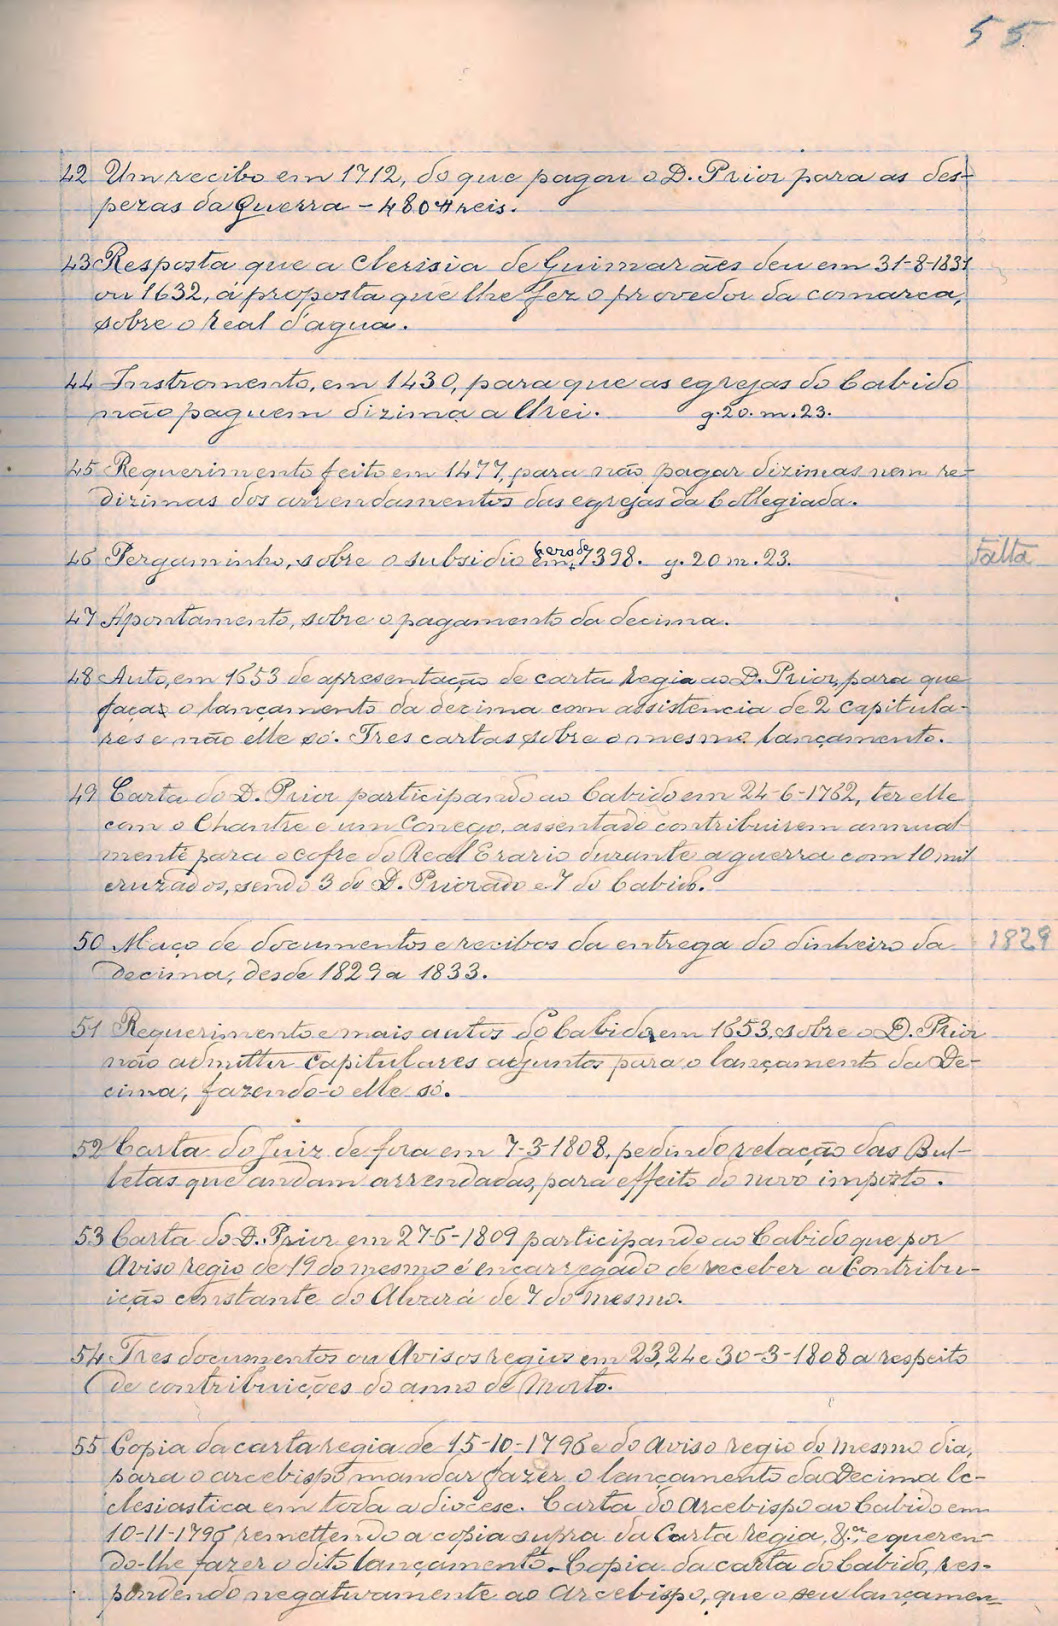 55
42 Um recibo em 1712, do que pagou o D. Prior para as des-
pezas da Guerra - 480# reis.
43 Resposta que a Clerisia de Guimarães deu em 31-8-1831
ou 1632, á proposta que lhe fez o provedor da comarca,
sobre o real d'agua.
44 Instromento, em 1430, para que as egrejas do Cabido
não paguem dizima a Elrei. g. 20. m. 23.
45 Requerimento feito em 1477, para não pagar dizimas nem re-
dizimas dos arrendamentos das egrejas da Collegiada.
46 Pergaminho, sobre o subsidio em era de 1398. g. 20 m. 23. Falta
47 Apontamento, sobre o pagamento da decima.
48 Auto, em 1653 de apresentação de carta regia ao D. Prior, para que
faça o lançamento da decima com assistencia de 2 capitula-
res e não elle só. Tres cartas sobre o mesmo lançamento.
49 Carta do D. Prior participando ao Cabido em 24-6-1762, ter elle
com o Chantre e um Conego, assentado contribuirem annual
mente para o cofre do Real Erario durante a guerra com 10 mil
cruzados, sendo 3 do D. Priorado e 7 do Cabido.
50 Maço de documentos e recibos da entrega do dinheiro da 1829
Decima, desde 1829 a 1833.
51 Requerimento e mais autos do Cabido, em 1653, sobre o D. Prior
não admittir capitulares adjuntos para o lançamento da De-
cima, fazendo-o elle só.
52 Carta do Juiz de fora em 7-3-1808, pedindo relação das Bul-
letas que andam arrendadas, para effeito do novo imposto.
53 Carta do D. Prior em 27-6-1809 participando ao Cabido que por
Aviso regio de 19 do mesmo é encarregado de receber a Contribu-
ição constante do Alvará de 7 do mesmo.
54 Tres documentos ou Avisos regios em 23, 24 e 30-3-1808 a respeito
de contribuições do anno de Morto.
55 Copia da carta regia de 15-10-1796 e do Aviso regio do mesmo dia,
para o arcebispo mandar fazer o lençamento da Decima Ec-
clesiastica em toda a diocese. Carta do Arcebispo ao Cabido em
10-11-1796 remettendo a copia supra da Carta regia, &.ª e queren-
do-lhe fazer o dito lançamento. Copia da carta do Cabido, res-
pondendo negativamente ao Arcebispo, que o seu lançamen=